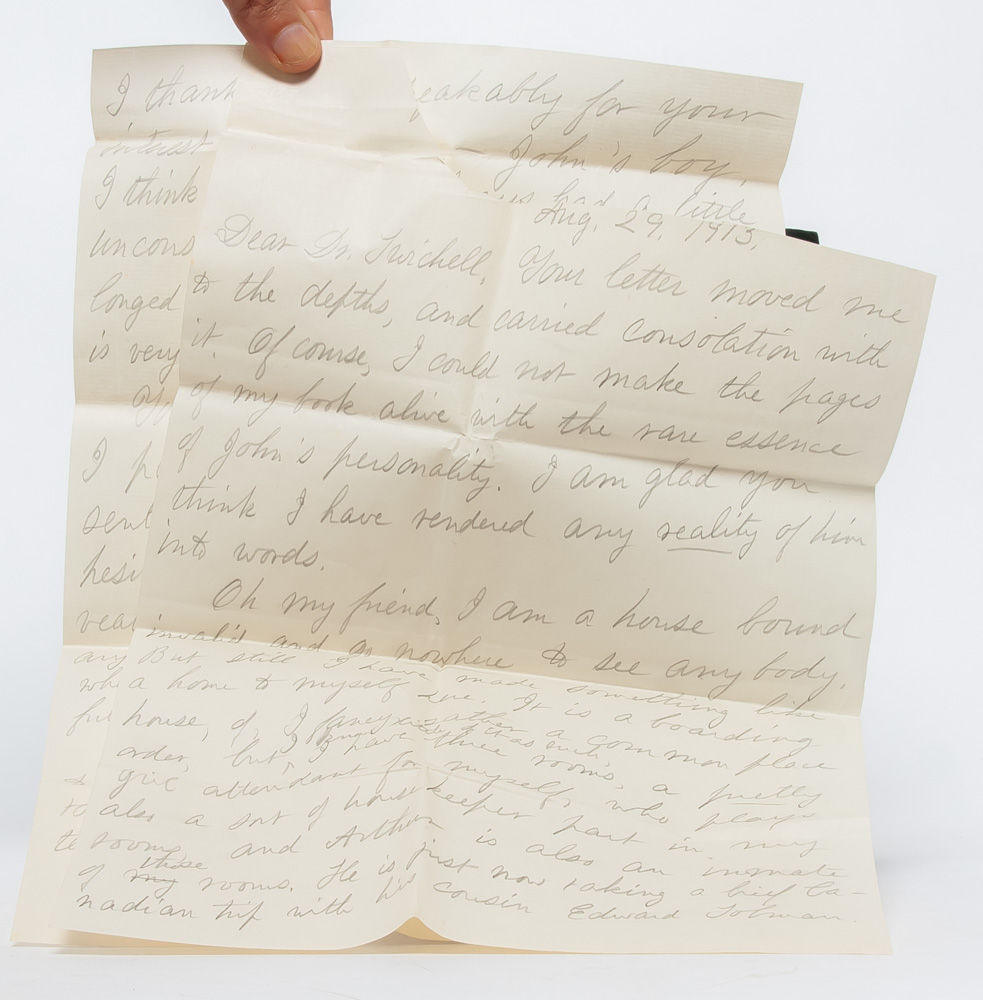 I thank eakably for your
interest John's boy.
I think had a little
uncons
longed
is very
I
sent
hesi
any
Aug. 29, 1913.
Dear Dr. Twichell, Your letter moved me
to the depths, and carried consolation with
it. Of course, I could not make the pages
of my book alive with the rare essence
of John's personality. I am glad you
think I have rendered any reality of him
into words.
Oh my friend, I am a house bound
invalid and go nowhere to see any body.
But still I have made something like
a home to myself It is a boarding
house, of, I fancy rather a common place
order, but, I have three rooms, a pretty
give attendant for myself, who plays
also a sort of house keeper part in my
rooms and Arthur is also an inmate
of my these rooms. He is just now taking a brief Ca-
nadian trip with his cousin Edward Tolman.